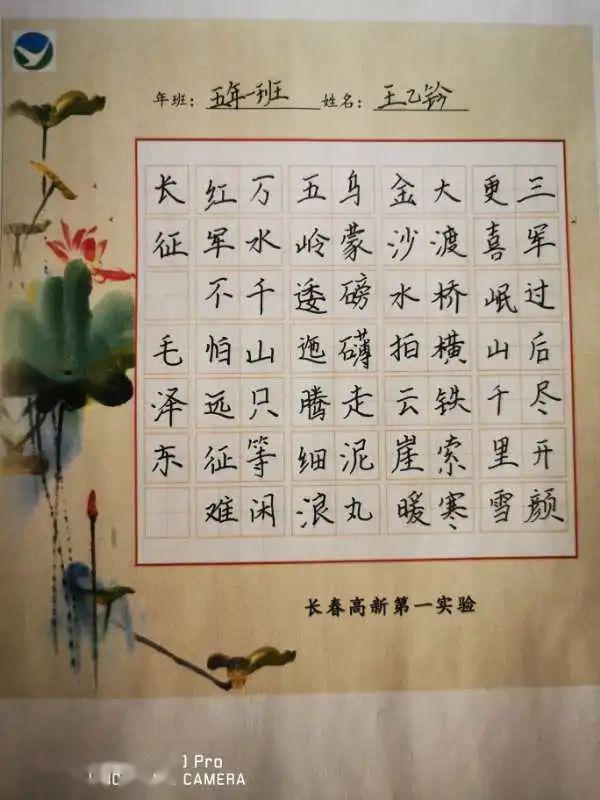 年班：五年一班 姓名：王乙𬭚
长征 毛泽东
红军不怕远征难
万水千山只等闲
五岭逶迤腾细浪
乌蒙磅礴走泥丸
金沙水拍云崖暖
大渡桥横铁索寒
更喜岷山千里雪
三军过后尽开颜
长春高新第一实验
Pro
CAMERA